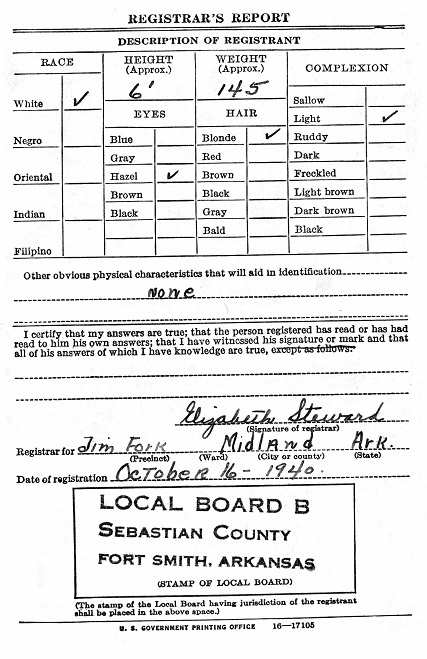 REGISTRAR'S REPORT
DESCRIPTION OF REGISTRANT
RACE
HEIGHT (Approx.)
WEIGHT (Approx.)
COMPLEXION
6' 145
White ✓
EYES
HAIR
Sallow
Light ✓
Negro
Blue
Blonde ✓
Ruddy
Gray
Red
Dark
Oriental
Hazel ✓
Brown
Freckled
Brown
Black
Light brown
Indian
Black
Gray
Dark brown
Bald
Black
Filipino
Other obvious physical characteristics that will aid in identification
None
I certify that my answers are true; that the person registered has read or has had
read to him his own answers; that I have witnessed his signature or mark and that
all of his answers of which I have knowledge are true, except as follows:
Elizabeth Steward
(Signature of registrar)
Registrar for Jim Fork Midland Ark.
(Precinct) (Ward) (City or county) (State)
Date of registration October 16 - 1940.
LOCAL BOARD B
SEBASTIAN COUNTY
FORT SMITH, ARKANSAS
(STAMP OF LOCAL BOARD)
(The stamp of the Local Board having jurisdiction of the registrant
shall be placed in the above space.)
U. S. GOVERNMENT PRINTING OFFICE 16—17105